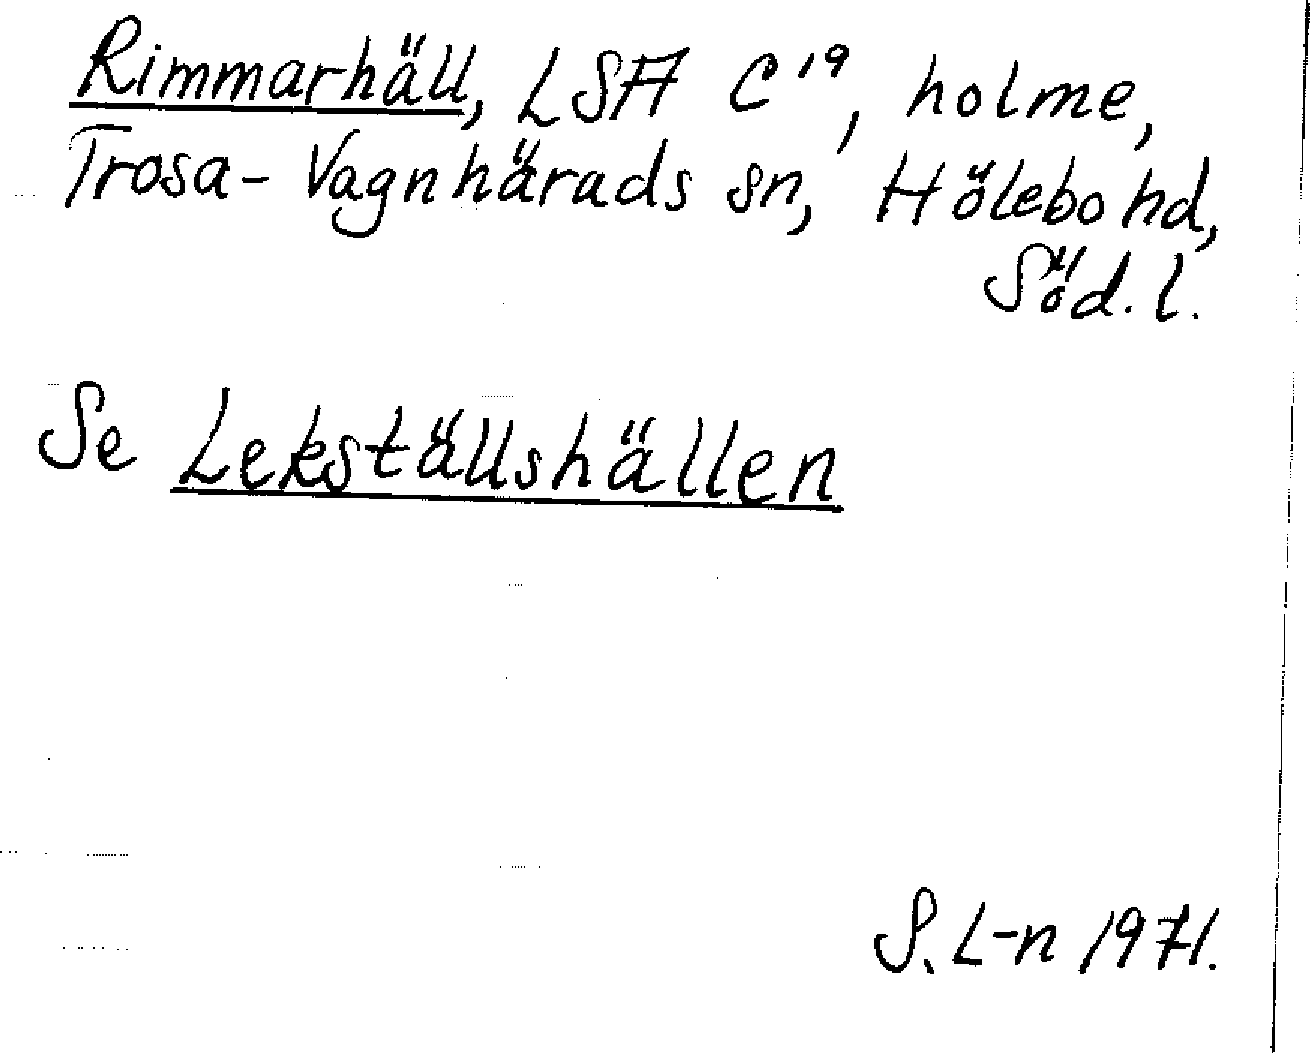 Rimmarhäll, LSA C¹⁹, holme,
Trosa-Vagnhärads sn, Hölebo hd,
Söd. l.
Se Lekställshällen
S. L-n 1971.